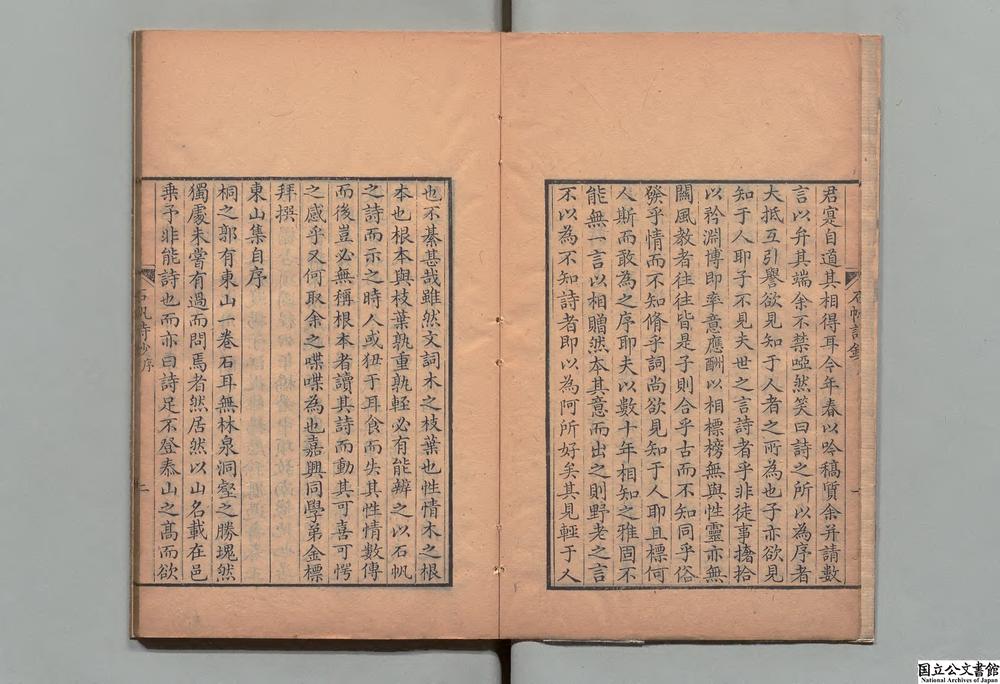 君寔自道其相得耳今年春以吟稿質余并請數
言以弁其端余不禁啞然笑曰詩之所以為序者
大抵互引譽欲見知于人者之所為也子亦欲見
知于人耶子不見夫世之言詩者乎非徒事擔拾
以矜淵博即率意應酬以相標榜無與性靈亦無
關風教者往往皆是子則合乎古而不知同乎俗
發乎情而不知脩乎詞尚欲見知于人耶且標何
人斯而敢為之序耶夫以數十年相知之雅固不
能無一言以相贈然本其意而出之則野老之言
不以為不知詩者即以為阿所好矣其見輕于人
也不綦甚哉雖然文詞木之枝葉也性情木之根
本也根本與枝葉孰重孰輕必有能辨之以石帆
之詩而示之時人或狃于耳食而失其性情數傳
而後豈必無稱根本者讀其詩而動其可喜可愕
之感乎又何取余之喋喋為也嘉興同學弟金標
拜撰
東山集自序
桐之郭有東山一卷石耳無林泉洞壑之勝塊然
獨處未嘗有過而問焉者然居然以山名載在邑
乘予非能詩也而亦曰詩足不登泰山之高而欲
石帆詩鈔 序
國立公文書館
National Archives of Japan